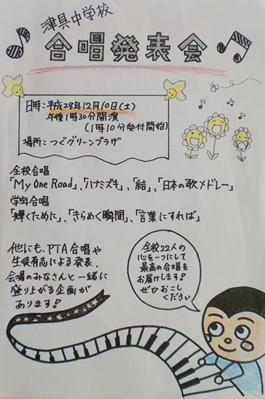 津具中学校
合唱発表会
日時:平成28年12月10日(土)
午後1時30分開演
(1時10分受付開始)
場所:つぐグリーンプラザ
全校合唱
「My One Road」、「ハナミズキ」、「結」、「日本の歌メドレー」
学年合唱
「輝くために」、「きらめく瞬間」、「言葉にすれば」
他にも、PTA合唱や
生徒有志による発表、
会場のみなさんと一緒に
盛り上がる企画が
あります!
全校22人の
心を一つにして
最高の合唱を
お届けします!
ぜひおこし
ください